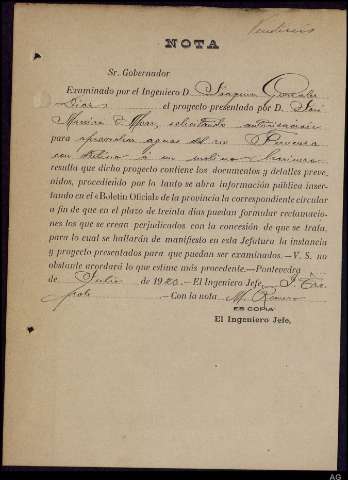 NOTA
Sr. Gobernador
Examinado por el Ingeniero D. Joaquín González
el proyecto presentado por D. José
solicitando autorización
para aprovechar aguas del río
con destino a un molino harinero
resulta que dicho proyecto contiene los documentos y detalles preve-
nidos, procediendo por lo tanto se abra información pública inser-
tando en el «Boletin Oficial» de la provincia la correspondiente circular
a fin de que en el plazo de treinta días puedan formular reclamacio-
nes los que se crean perjudicados con la concesión de que se trata,
para lo cual se hallarán de manifiesto en esta Jefatura la instancia
y proyecto presentados para que puedan ser examinados.—V. S. no
obstante acordará lo que estime más procedente.—Pontevedra
de Julio de 1920.—El Ingeniero Jefe,
.—Con la nota M. Romero
ES COPIA
El Ingeniero Jefe,
AG